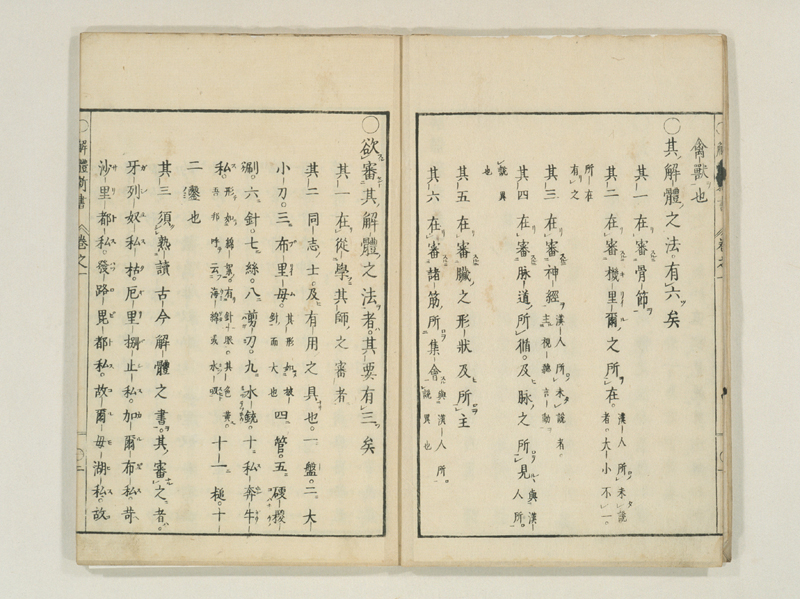 禽獸也
〇其解體之法。有六矣
其一 在審骨節
其二 在審機里爾之所在。漢人所未說者。大小不一。
所在有之
其三 在審神經 漢人所未說者。主視聽言動
其四 在審脉道所循。及脉之所見 與漢人所。
說異也
其五 在審臟之形狀及所主
其六 在審諸筋所集會 與漢人所。說異也
〇欲審其解體之法者。其要有三矣
其一 在從學其師之審者
其二 同志士。及有用之具也。一盤。二大
小刀。三布里毋。其形如披針而大也 四管。五硬
六針。七絲。八剪刀。九水銃。十私奔牛
私 形如綿絮。有針眼。其色黃。吾邦呼云海綿或水 十一槌。十
二鑿也
其三 須熟讀古今解體之書。其審之者。
牙列奴私。枯厄里捌止私。加爾布私。苛
沙里都私。發路毘都私。故爾毋湖私。故
解體新書 卷之一